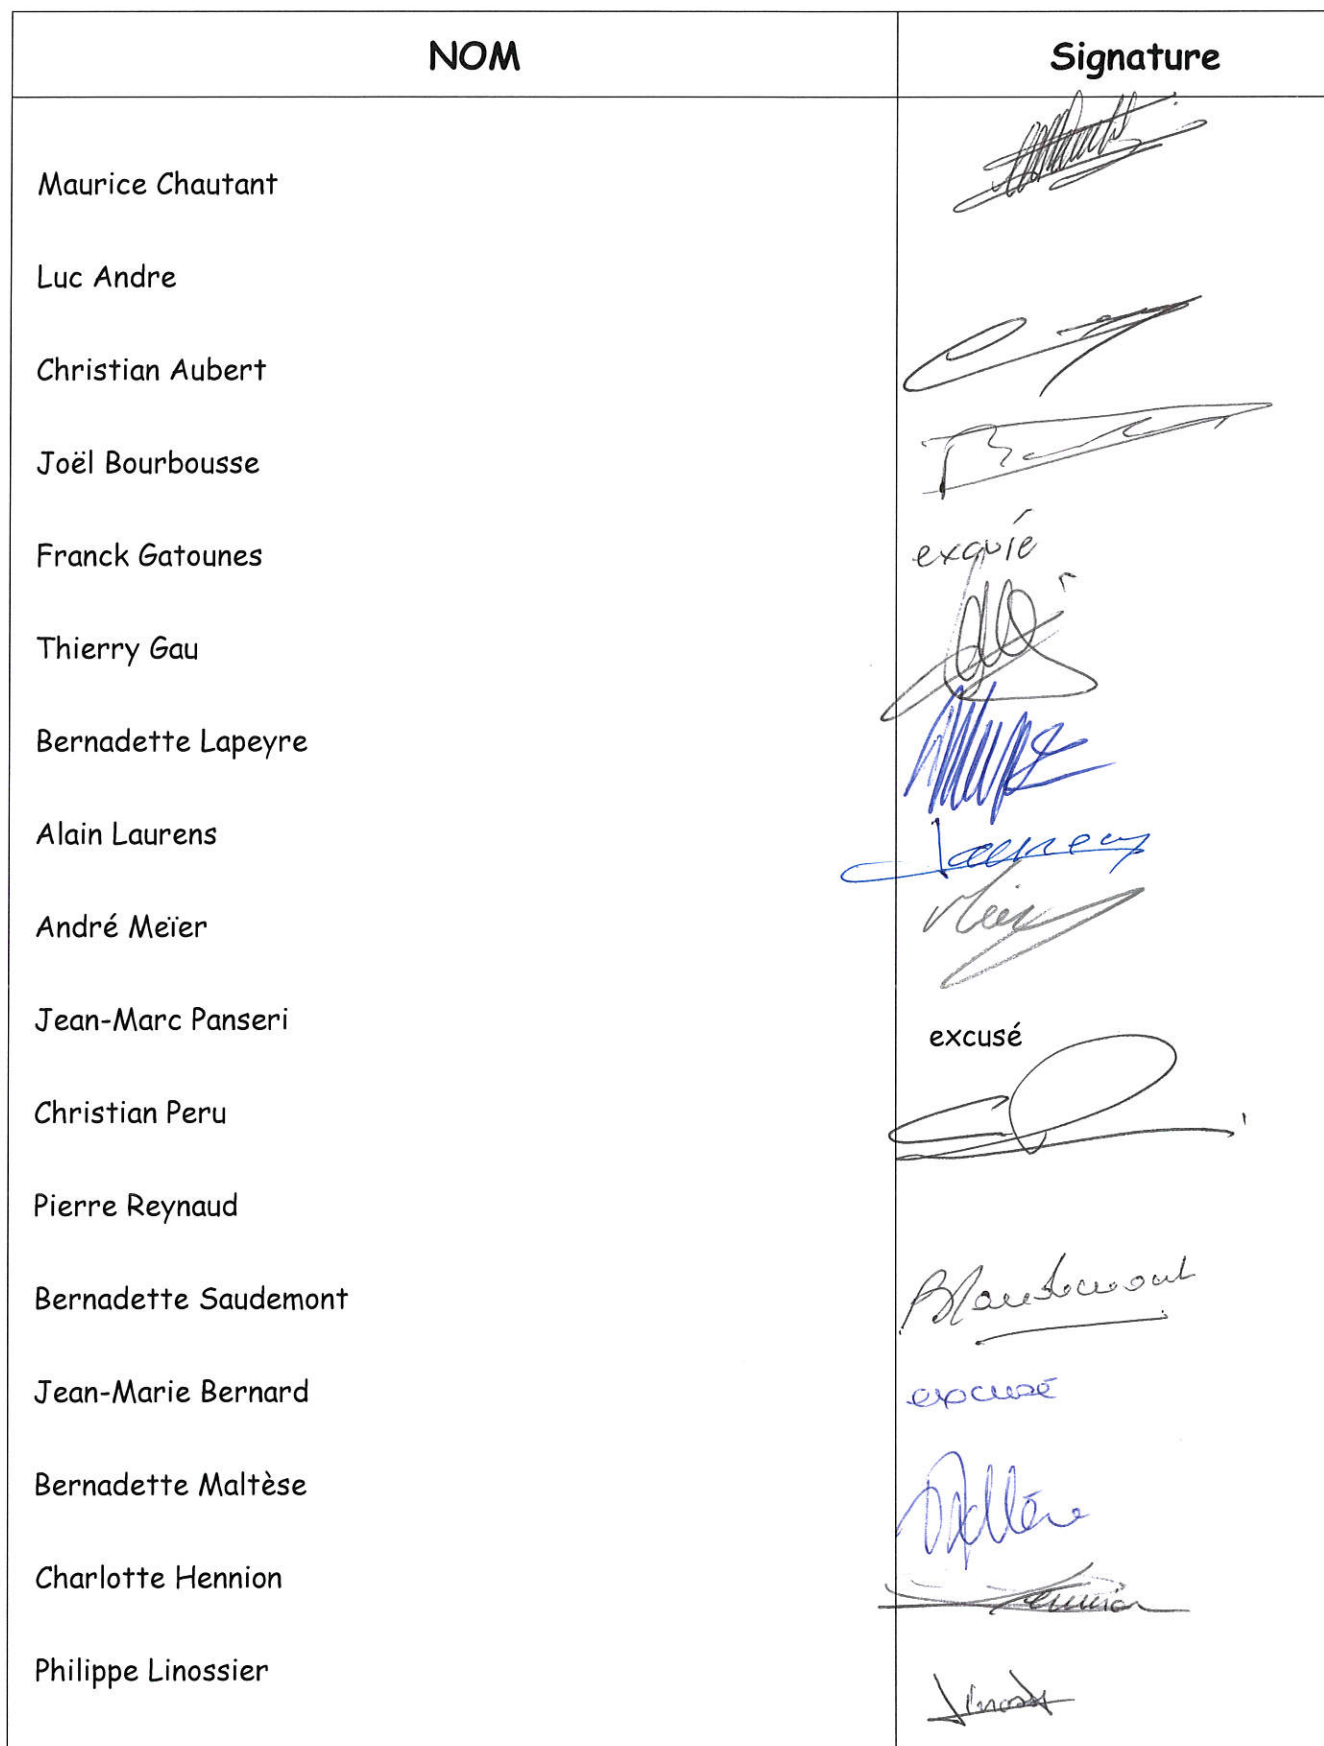 NOM Signature
Maurice Chautant
Luc Andre
Christian Aubert
Joël Bourbousse
Franck Gatounes
Thierry Gau
Bernadette Lapeyre
Alain Laurens
André Meïer
Jean-Marc Panseri excusé
Christian Peru
Pierre Reynaud
Bernadette Saudemont BSaudemont
Jean-Marie Bernard excusé
Bernadette Maltèse
Charlotte Hennion Hennion
Philippe Linossier